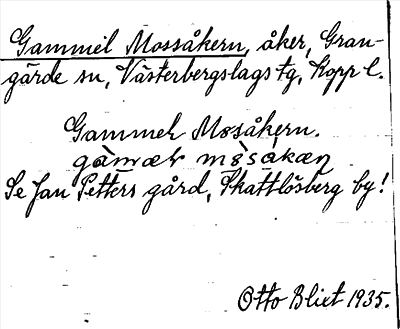 Gammel Mossåkern, åker, Gran-
gärde sn, Västerbergslags tg, Kopp l.
Gammel Mosåkern.
gàmæl mòsåkæṇ
Se Jan Petters gård, Skattlösberg by!
Otto Blixt 1935.